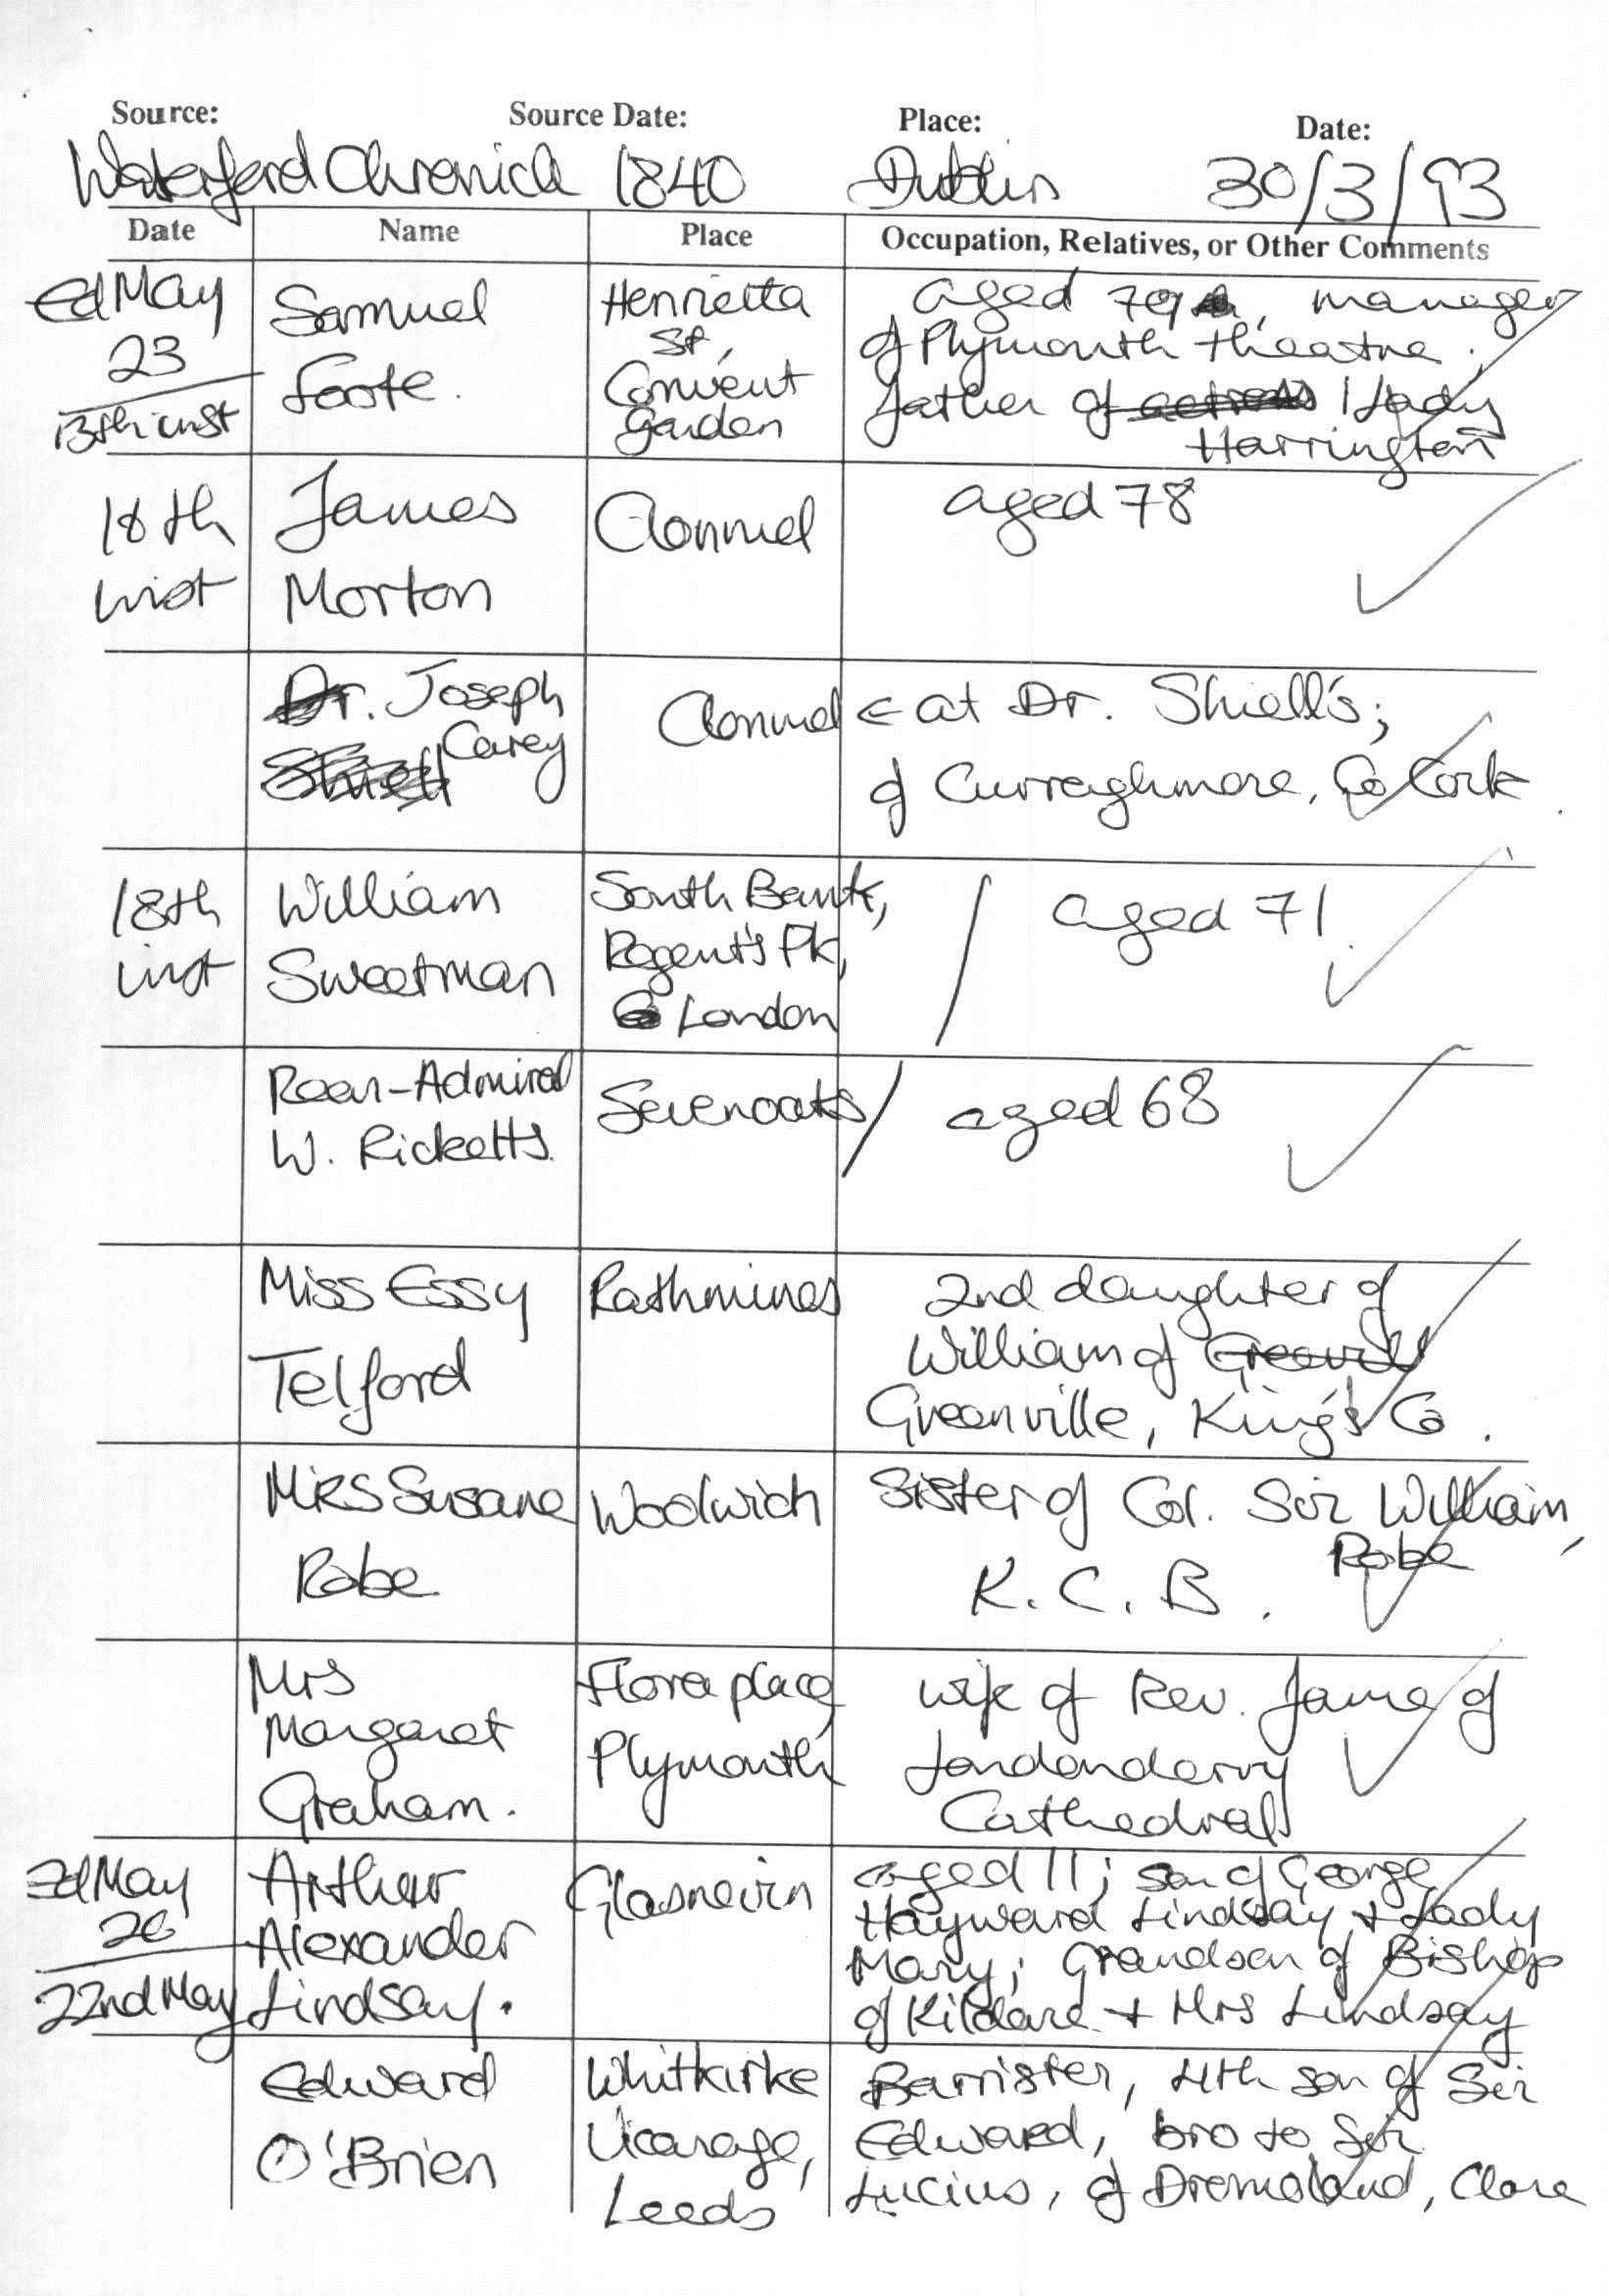 Source: Source Date: Place: Date:
Waterford Chronicle 1840 Dublin 30/3/93
Date Name Place Occupation, Relatives, or Other Comments
Ed May 23
13th inst
Samuel
Foote.
Henrietta
St,
Convent
Garden
aged 79, manager
of Plymouth theatre;
father of actress Lady
Harrington
18th
inst
James
Morton
Clonmel
aged 78
Dr. Joseph
Carey
Shiell
Clonmel
at Dr. Shiell's;
of Curraghmore, Co Cork.
18th
inst
William
Sweetman
South Bank,
Regent's Pk,
London
aged 71.
Rear-Admiral
W. Ricketts.
Sevenoaks
aged 68
Miss Essy
Telford
Rathmines
2nd daughter of
William of Greevill
Greenville, King's Co.
MRS Susane
Robe
Woolwich
Sister of Col. Sir William,
Robe
K.C.B.
Mrs
Margaret
Graham.
Flora place
Plymouth
wife of Rev. Jame of
Londonderry
Cathedral
Ed May
26
22nd May
Arthur
Alexander
Lindsay.
Glasnevin
aged 11; son of George
Hayward Lindsay & Lady
Mary; Grandson of Bishop
of Kildare & Mrs Lindsay
Edward
O'Brien
Whitkirke
Vicarage,
Leeds
Barrister, 4th son of Sir
Edward, bro to Sir
Lucius, of Dromoland, Clare